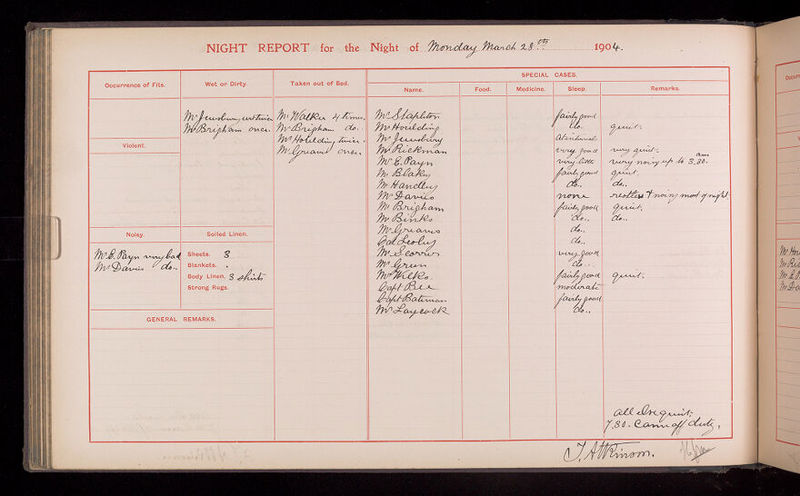 NIGHT REPORT for the Night of Monday March 28th 1904.
Occurrence of Fits.
Wet or Dirty.
Taken out of Bed.
SPECIAL CASES.
Name.
Food.
Medicine.
Sleep.
Remarks.
Mr Jewsbury wet twice
Mr Brigham once.
Mr Walker 4 times.
Mr Brigham do.
Mr Houlding twice.
Mr Greaves once.
Violent.
Noisy.
Soiled Linen.
Mr E. Payn very bad
Mr Davies do.
Sheets. 3
Blankets. .
Body Linen. 3 shirts
Strong Rugs.
GENERAL REMARKS.
Mr Stapleton fairly good
Mr Houlding do. quiet.
Mr Jewsbury
Mr Rickman very good very quiet.
Mr E. Payn very little very noisy up to 3.30. am
Mr Blakey fairly good quiet.
Mr Handley do. do.
Mr Davies none restless & noisy most of night
Mr Brigham fairly good quiet.
Mr Binks do. do.
Mr Greaves do.
do.
Mr Scorrer very good
Mr Green do.
Mr Wilks fairly good quiet.
Capt Bee moderate
Capt Bateman fairly good
Mr Laycock do.
all else quiet.
7.30. Came off duty.
J. Atkinson.